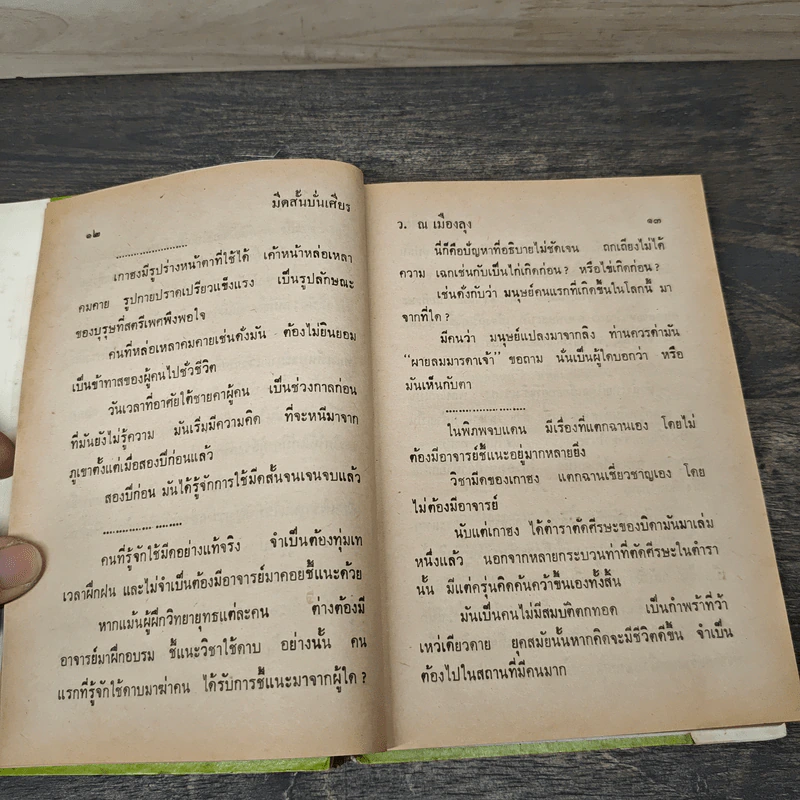 มีดสั้นบั่นเศียร
๑๒
.....................
เกาฮงมีรูปร่างหน้าตาที่ใช้ได้ เค้าหน้าหล่อเหลา
คมคาย รูปกายปราดเปรียวแข็งแรง เป็นรูปลักษณะ
ของบุรุษที่สตรีเพศพึงพอใจ
คนที่หล่อเหลาคมคายเช่นดั่งมัน ต้องไม่ยินยอม
เป็นข้าทาสของผู้คนไปชั่วชีวิต
วันเวลาที่อาศัยใต้ชายคาผู้คน เป็นช่วงกาลก่อน
ที่มันยังไม่รู้ความ มันเริ่มมีความคิด ที่จะหนีมาจาก
ภูเขาตั้งแต่เมื่อสองปีก่อนแล้ว
สองปีก่อน มันได้รู้จักการใช้มีดสั้นจนเจนจบแล้ว
.....................
คนที่รู้จักใช้มีดอย่างแท้จริง จำเป็นต้องทุ่มเท
เวลาฝึกฝน และไม่จำเป็นต้องมีอาจารย์มาคอยชี้แนะด้วย
หากแม้นผู้ฝึกวิทยายุทธแต่ละคน ต่างต้องมี
อาจารย์มาฝึกอบรม ชี้แนะวิชาใช้ดาบ อย่างนั้น คน
แรกที่รู้จักใช้ดาบมาฆ่าคน ได้รับการชี้แนะมาจากผู้ใด ?
ว. ณ เมืองลุง
๑๓
นี่ก็คือปัญหาที่อธิบายไม่ชัดเจน ถกเถียงไม่ได้
ความ เฉกเช่นกับเป็นไก่เกิดก่อน ? หรือไข่เกิดก่อน ?
เช่นดั่งกับว่า มนุษย์คนแรกที่เกิดขึ้นในโลกนี้ มา
จากที่ใด ?
มีคนว่า มนุษย์แปลงมาจากลิง ท่านควรด่ามัน
“ผายลมมารดาเจ้า” ขอถาม นั่นเป็นผู้ใดบอกว่า หรือ
มันเห็นกับตา
.....................
ในพิภพจบแดน มีเรื่องที่แตกฉานเอง โดยไม่
ต้องมีอาจารย์ชี้แนะอยู่มากหลายยิ่ง
วิชามีดของเกาฮง แตกฉานเชี่ยวชาญเอง โดย
ไม่ต้องมีอาจารย์
นับแต่เกาฮง ได้ตำราตัดศีรษะของบิดามันมาเล่ม
หนึ่งแล้ว นอกจากหลายกระบวนท่าที่ตัดศีรษะในตำรา
นั้น มีแต่ครุ่นคิดค้นคว้าขึ้นเองทั้งสิ้น
มันเป็นคนไม่มีสมบัติตกทอด เป็นกำพร้าที่ว้า
เหว่เดียวดาย ยุคสมัยนั้นหากคิดจะมีชีวิตดีขึ้น จำเป็น
ต้องไปในสถานที่มีคนมาก